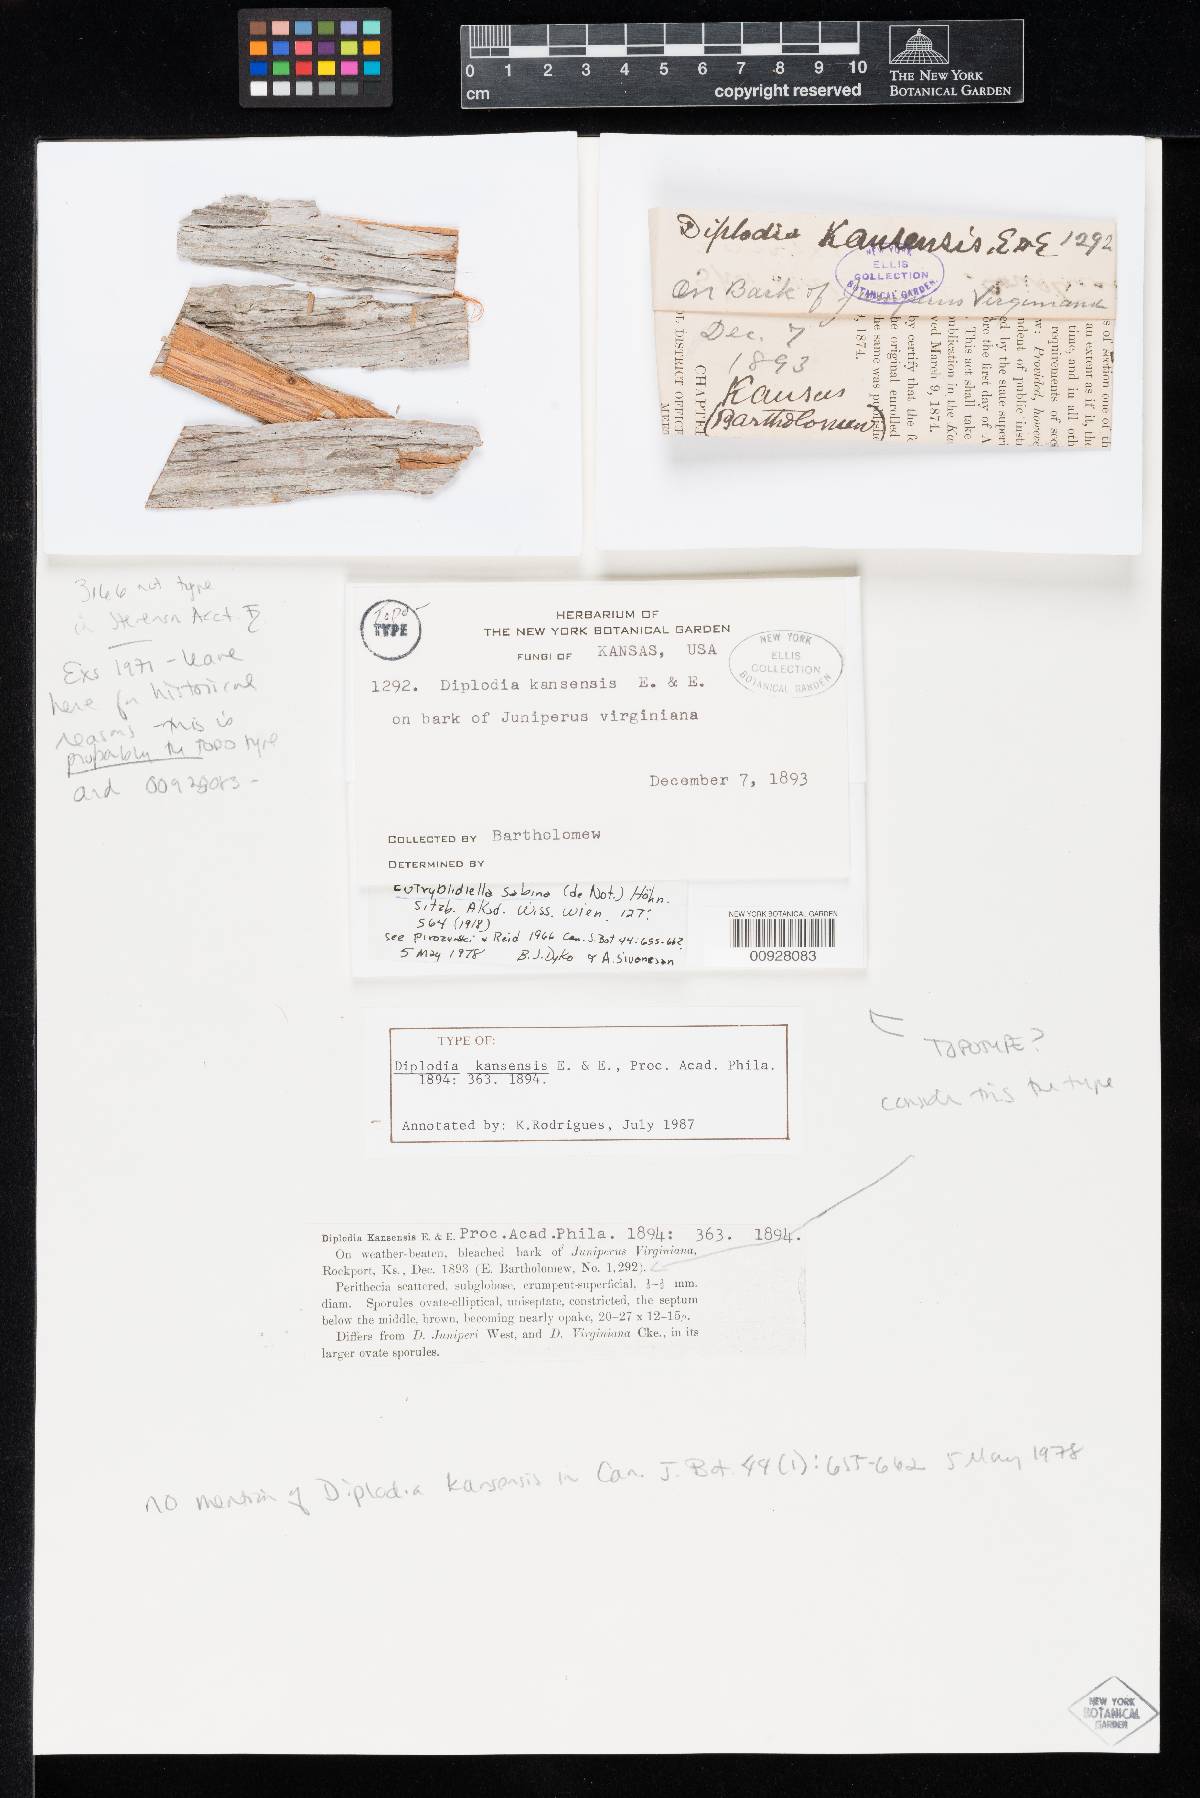 0 1 2 3 4 5 6 7 8 9 10
cm
copyright reserved
THE NEW YORK
BOTANICAL GARDEN
Diplodia Kansensis, E&E 1292
NEW YORK
ELLIS
COLLECTION
BOTANICAL GARDEN.
On Bark of Juniperus Virginiana
Dec. 7
1893
Kansas
(Bartholomew)
s of section one of th
an extent as if it, the
time, and in all oth
requirements of sec
w: Provided, howeve
ndent of public inst
ed by the state superi
ore the first day of A
This act shall take
ublication in the Ka
ved March 9, 1874.
by certify that the f
he original enrolled
he same was publishe
, 1874.
CHAPTE
DISTRICT OFFICE
3166 not type
in Stevenson Acct.
Exs 1971 - leave
here for historical
reasons - this is
probably the TOPO type
and 00928083 -
Topo
TYPE
HERBARIUM OF
THE NEW YORK BOTANICAL GARDEN
FUNGI OF KANSAS, USA
NEW YORK
ELLIS
COLLECTION
BOTANICAL GARDEN
1292. Diplodia kansensis E. & E.
on bark of Juniperus virginiana
December 7, 1893
COLLECTED BY Bartholomew
DETERMINED BY
Eutryblidiella sabina (de Not.) Höhn.
Sitzb. Akad. Wiss. Wien. 127:
564 (1918)
see Pirozynski & Reid 1966 Can. J. Bot 44-655-662
5 May 1978 B.J. Dyko & A. Sivanesan
NEW YORK BOTANICAL GARDEN
00928083
TYPE OF:
Diplodia kansensis E. & E., Proc. Acad. Phila.
1894: 363. 1894.
Annotated by: K.Rodrigues, July 1987
TOPOTYPE?
consider this the type
Diplodia Kansensis E. & E. Proc.Acad.Phila. 1894: 363. 1894.
On weather-beaten, bleached bark of Juniperus Virginiana,
Rockport, Ks., Dec. 1893 (E. Bartholomew, No. 1,292).
Perithecia scattered, subglobose, erumpent-superficial, mm.
diam. Sporules ovate-elliptical, uniseptate, constricted, the septum
below the middle, brown, becoming nearly opake, 20–27 x 12–15µ.
Differs from D. Juniperi West, and D. Virginiana Cke., in its
larger ovate sporules.
no mention of Diplodia kansensis in Can. J. Bot. 44(1): 655-662 5 May 1978
NEW YORK
BOTANICAL
GARDEN